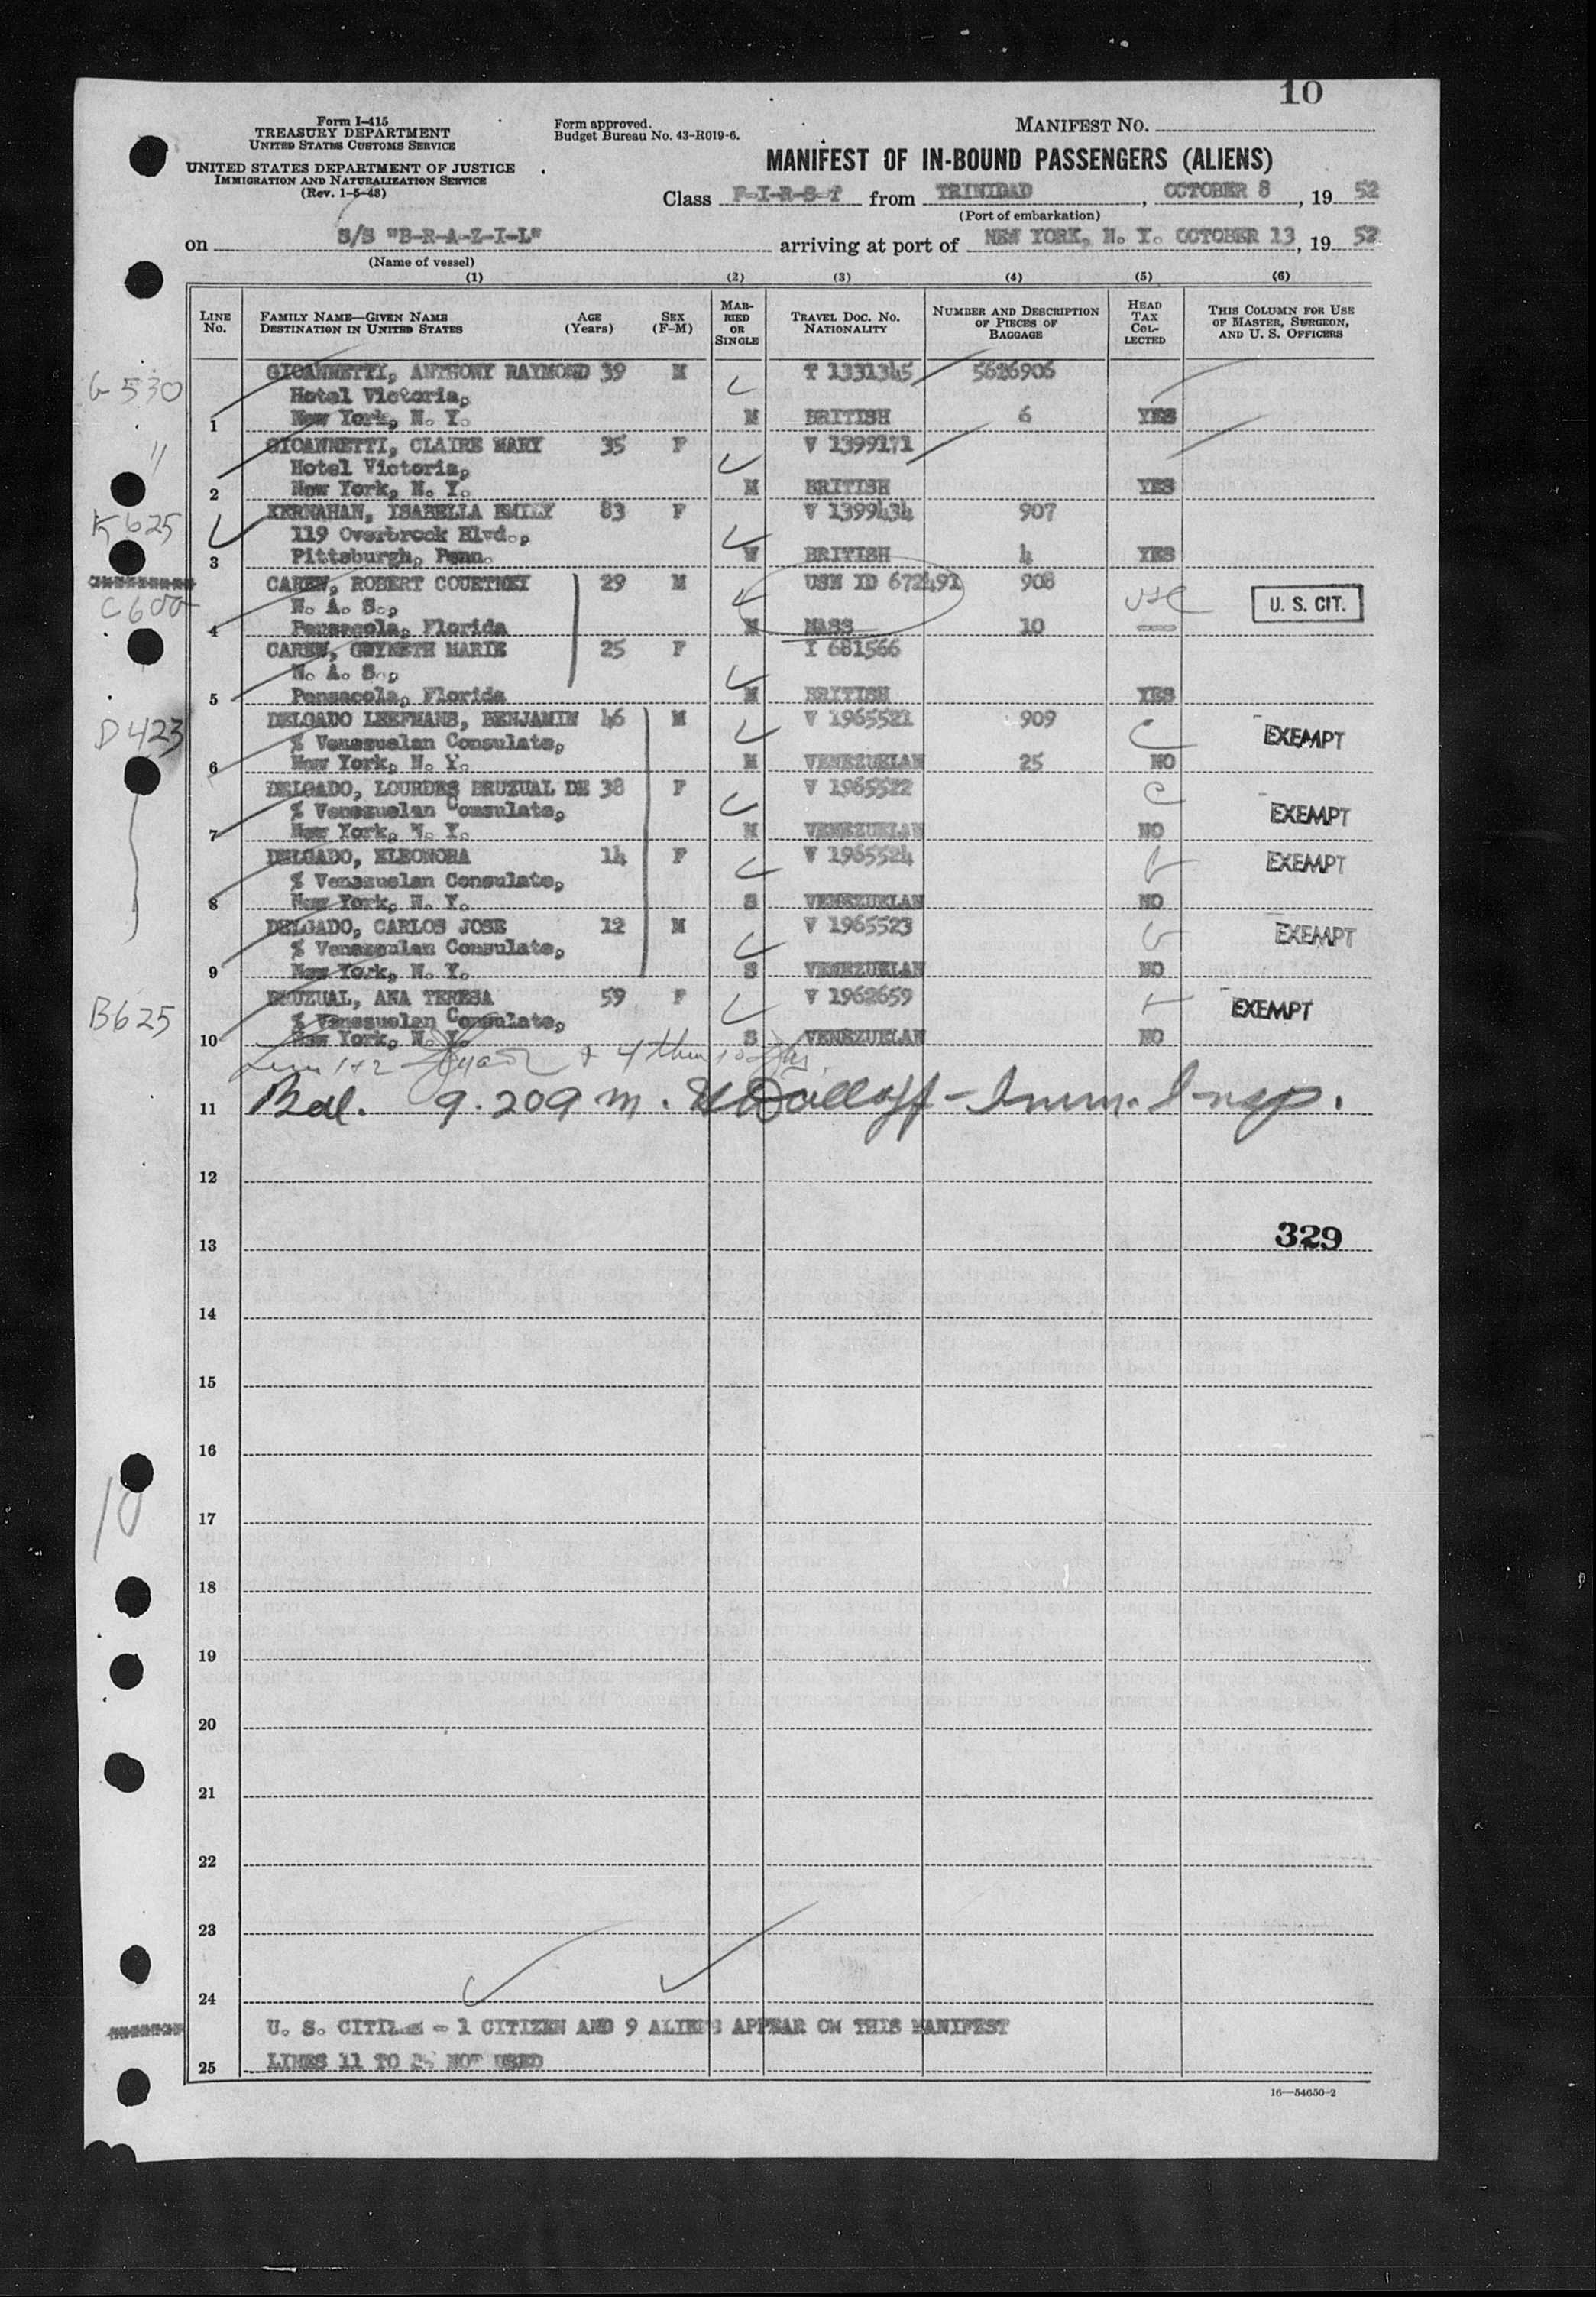 10
Form I-415
TREASURY DEPARTMENT
UNITED STATES CUSTOMS SERVICE
UNITED STATES DEPARTMENT OF JUSTICE
IMMIGRATION AND NATURALIZATION SERVICE
(Rev. 1-5-48)
Form approved.
Budget Bureau No. 43-R019-6.
MANIFEST NO.
MANIFEST OF IN-BOUND PASSENGERS (ALIENS)
Class F-I-R-S-T from TRINIDAD, OCTOBER 8, 19 52
(Port of embarkation)
on S/S "B-R-A-Z-I-L" arriving at port of NEW YORK, N. Y. OCTOBER 13, 19 52
(Name of vessel)
(1) (2) (3) (4) (5) (6)
LINE No. FAMILY NAME—GIVEN NAME DESTINATION IN UNITED STATES AGE (Years) SEX (F-M) MARRIED OR SINGLE TRAVEL DOC. NO. NATIONALITY NUMBER AND DESCRIPTION OF PIECES OF BAGGAGE HEAD TAX COLLECTED THIS COLUMN FOR USE OF MASTER, SURGEON, AND U. S. OFFICERS
G 530 GIOANNETTI, ANTHONY RAYMOND 39 M T 1331345 5626906
Hotel Victoria,
1 New York, N. Y. M BRITISH 6 YES
" GIOANNETTI, CLAIRE MARY 35 F V 1399171
Hotel Victoria,
2 New York, N. Y. M BRITISH YES
K625 KERNAHAN, ISABELLA EMILY 83 F V 1399434 907
119 Overbrook Blvd.,
3 Pittsburgh, Penn. W BRITISH 4 YES
C600 CAREW, ROBERT COURTNEY 29 M USN ID 672491 908
N. A. S., USC U. S. CIT.
4 Pensacola, Florida M MASS 10
CAREW, GWYNETH MARIE 25 F I 681566
N. A. S.,
5 Pensacola, Florida M BRITISH YES
D423 DELGADO LEEFMANS, BENJAMIN 46 M V 1965521 909
% Venezuelan Consulate, EXEMPT
6 New York, N. Y. M VENEZUELAN 25 NO
DELGADO, LOURDES BRUZUAL DE 38 F V 1965522
% Venezuelan Consulate, EXEMPT
7 New York, N. Y. M VENEZUELAN NO
DELGADO, ELEONORA 14 F V 1965524 EXEMPT
% Venezuelan Consulate,
8 New York, N. Y. S VENEZUELAN NO
DELGADO, CARLOS JOSE 12 M V 1965523 EXEMPT
% Venezuelan Consulate,
9 New York, N. Y. S VENEZUELAN NO
B625 BRUZUAL, ANA TERESA 59 F V 1962659 EXEMPT
% Venezuelan Consulate,
10 New York, N. Y. S VENEZUELAN NO
11 Bal. 9.209 m. Imm. Insp.
12
13 329
14
15
16
10
17
18
19
20
21
22
23
24
U. S. CITIZEN - 1 CITIZEN AND 9 ALIENS APPEAR ON THIS MANIFEST
25 LINES 11 TO 25 NOT USED
16—54650-2